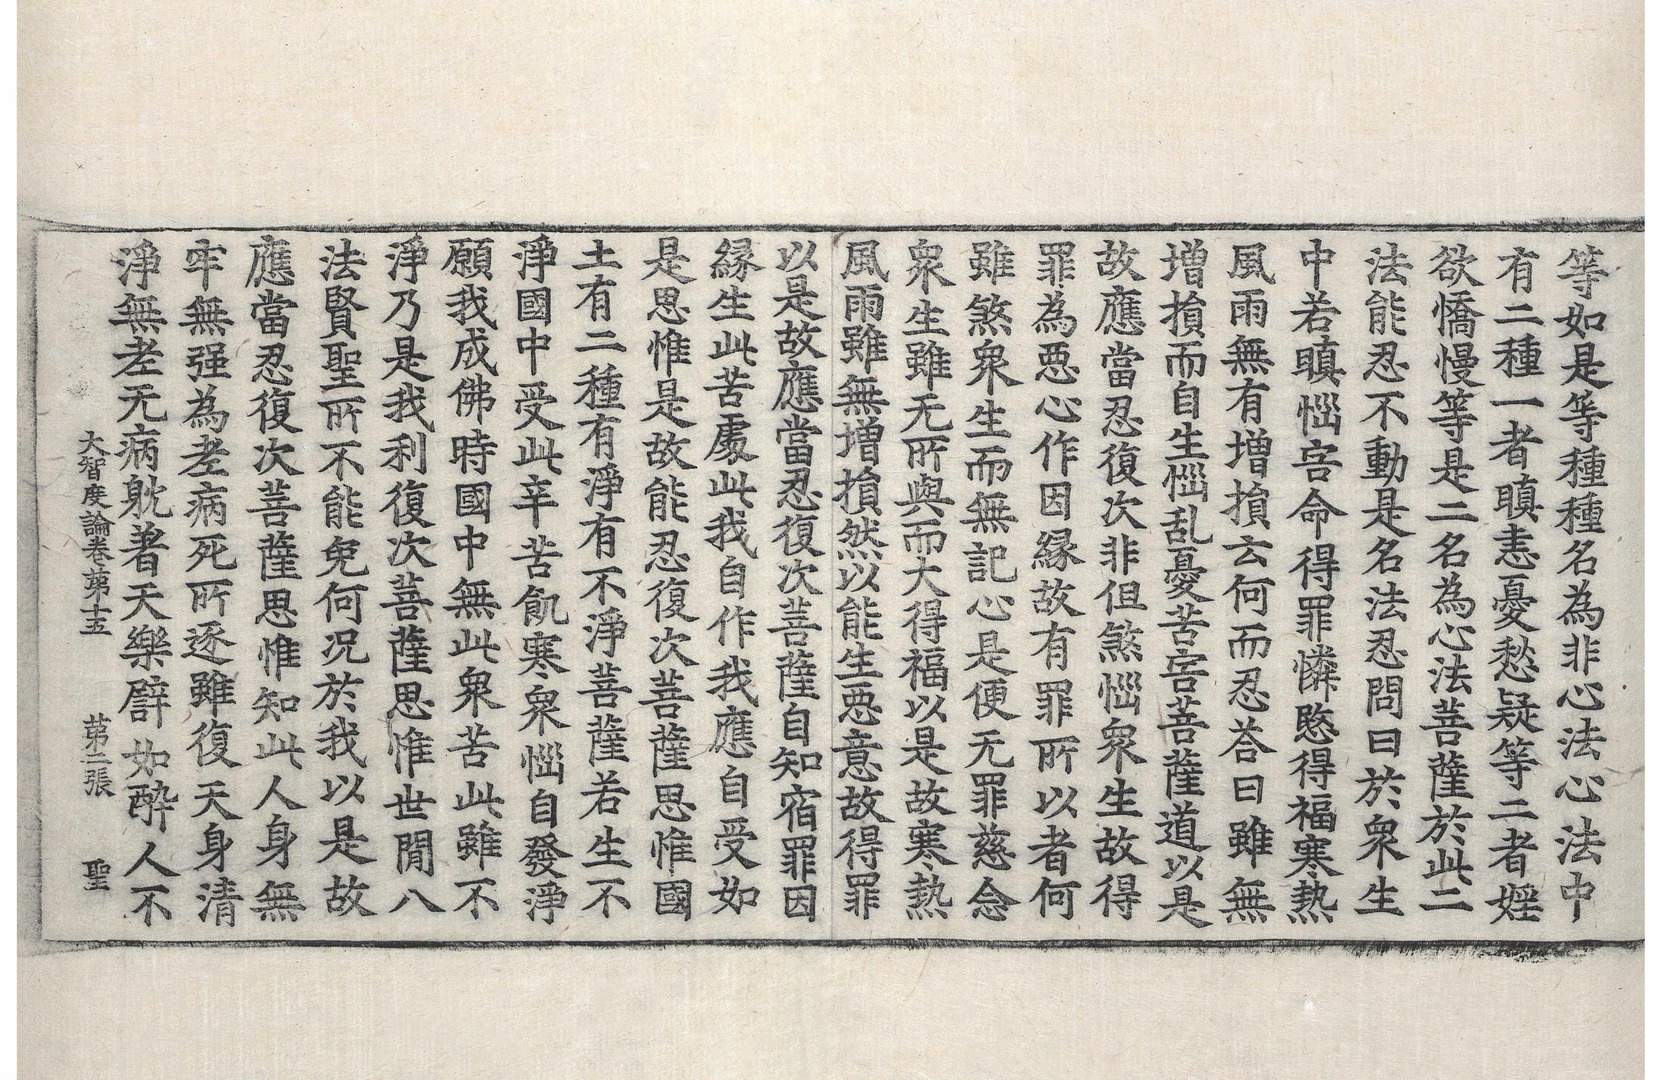 等如是等種種名為非心法心法中
有二種一者瞋恚憂愁疑等二者婬
欲憍慢等是二名為心法菩薩於此二
法能忍不動是名法忍問曰於衆生
中若瞋惱害命得罪憐愍得福寒熱
風雨無有增損云何而忍荅曰雖無
增損而自生惱乱憂苦害菩薩道以是
故應當忍復次非但煞惱衆生故得
罪為惡心作因縁故有罪所以者何
雖煞衆生而無記心是便无罪慈念
衆生雖无所與而大得福以是故寒熱
風雨雖無增損然以能生惡意故得罪
以是故應當忍復次菩薩自知宿罪因
縁生此苦處此我自作我應自受如
是思惟是故能忍復次菩薩思惟國
土有二種有淨有不淨菩薩若生不
淨國中受此辛苦飢寒衆惱自發淨
願我成佛時國中無此衆苦此雖不
淨乃是我利復次菩薩思惟世閒八
法賢聖所不能免何况於我以是故
應當忍復次菩薩思惟知此人身無
牢無强為老病死所逐雖復天身清
淨無老无病躭著天樂譬如醉人不
大智度論卷第十五 第二張 聖